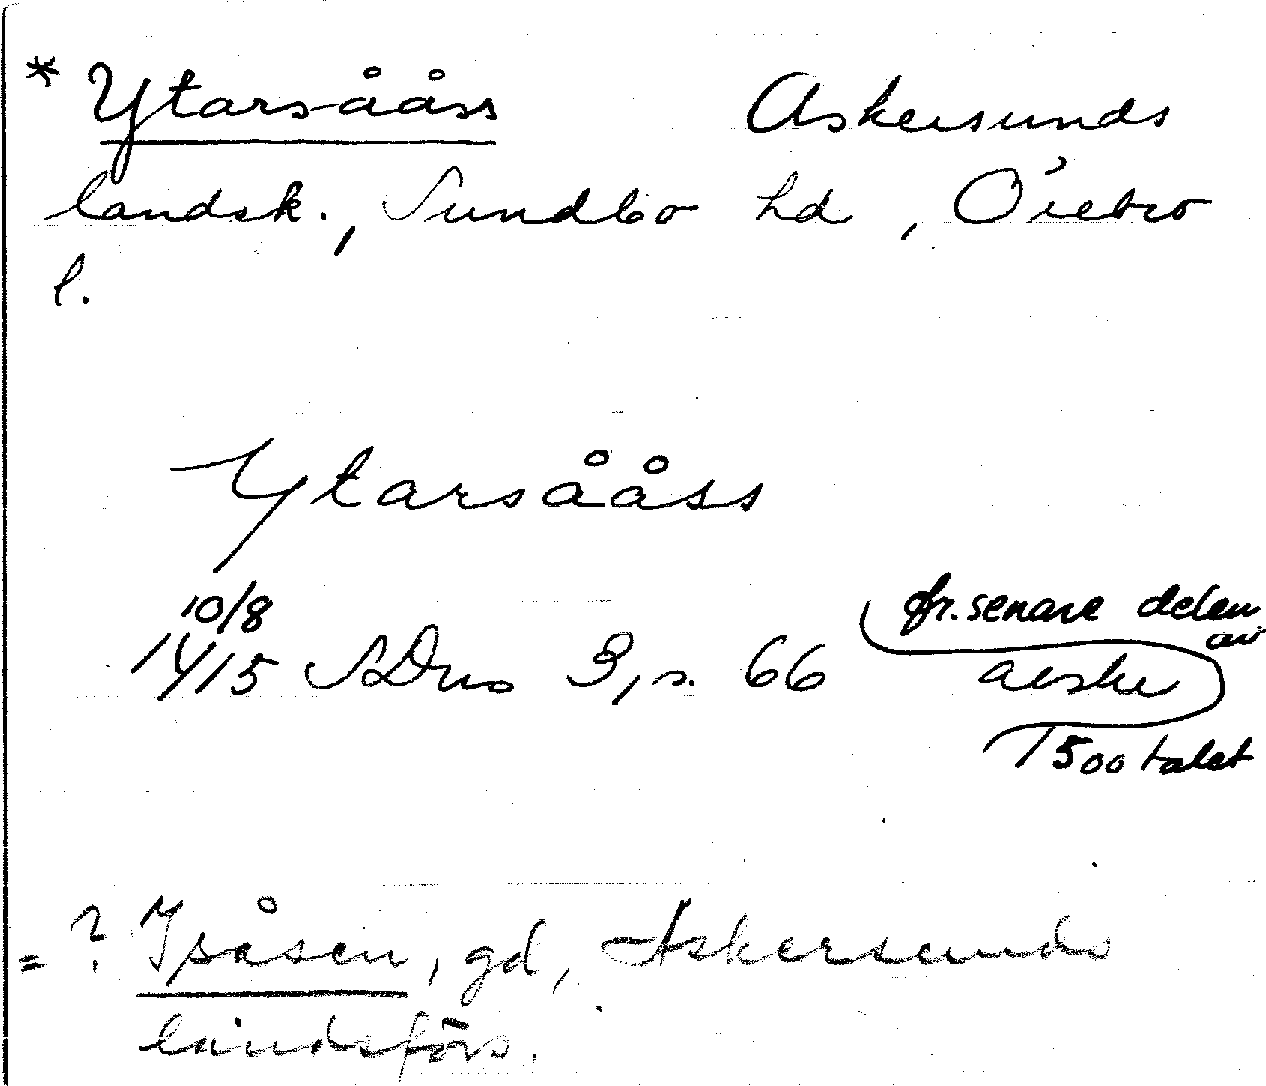 * Ytarsååss Askersunds
landsk., Sundbo hd, Örebro
l.
Ytarsååss
10/8
1415 SDns 3, s. 66 fr. senare delen
av
1500 talet
= ? Isåsen, gd, Askersunds
landsförs.